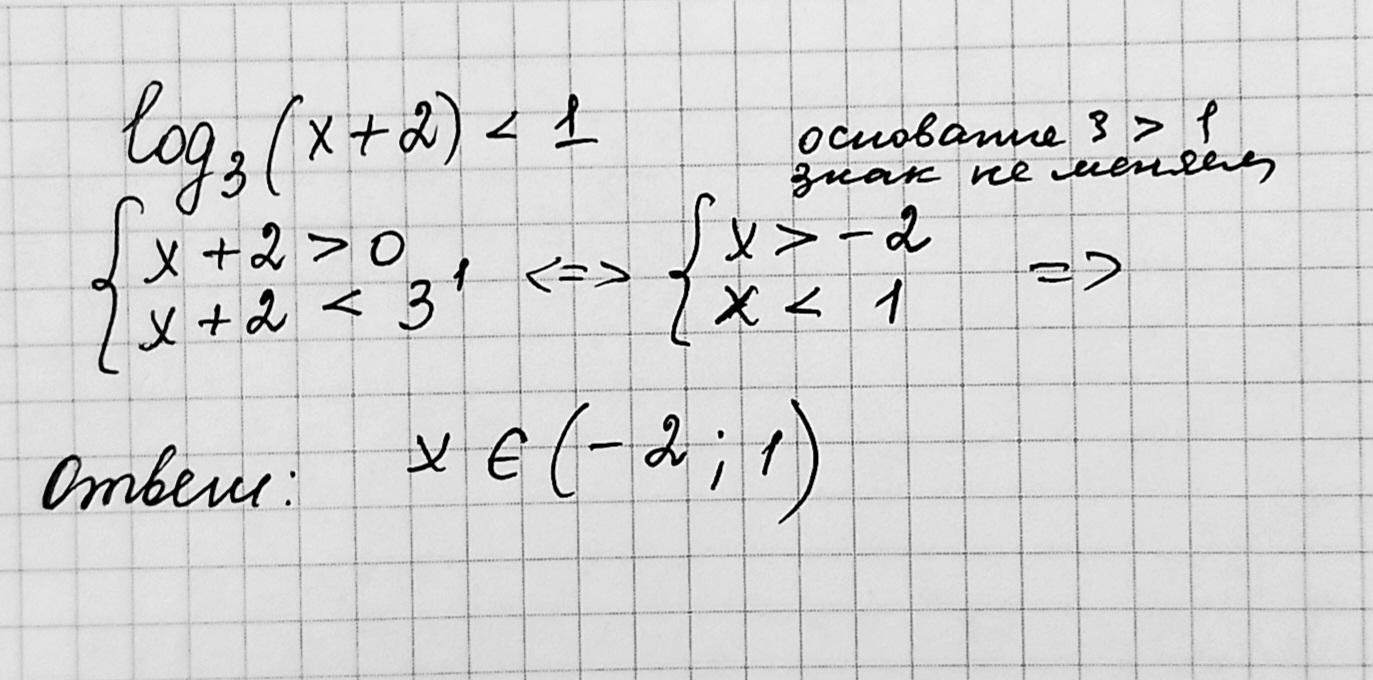 log₃(x+2) < 1
основание 3 > 1
знак не меняем
{ x + 2 > 0
x + 2 < 3¹
<=>
{ x > -2
x < 1
=>
Ответ: x ∈ (-2; 1)